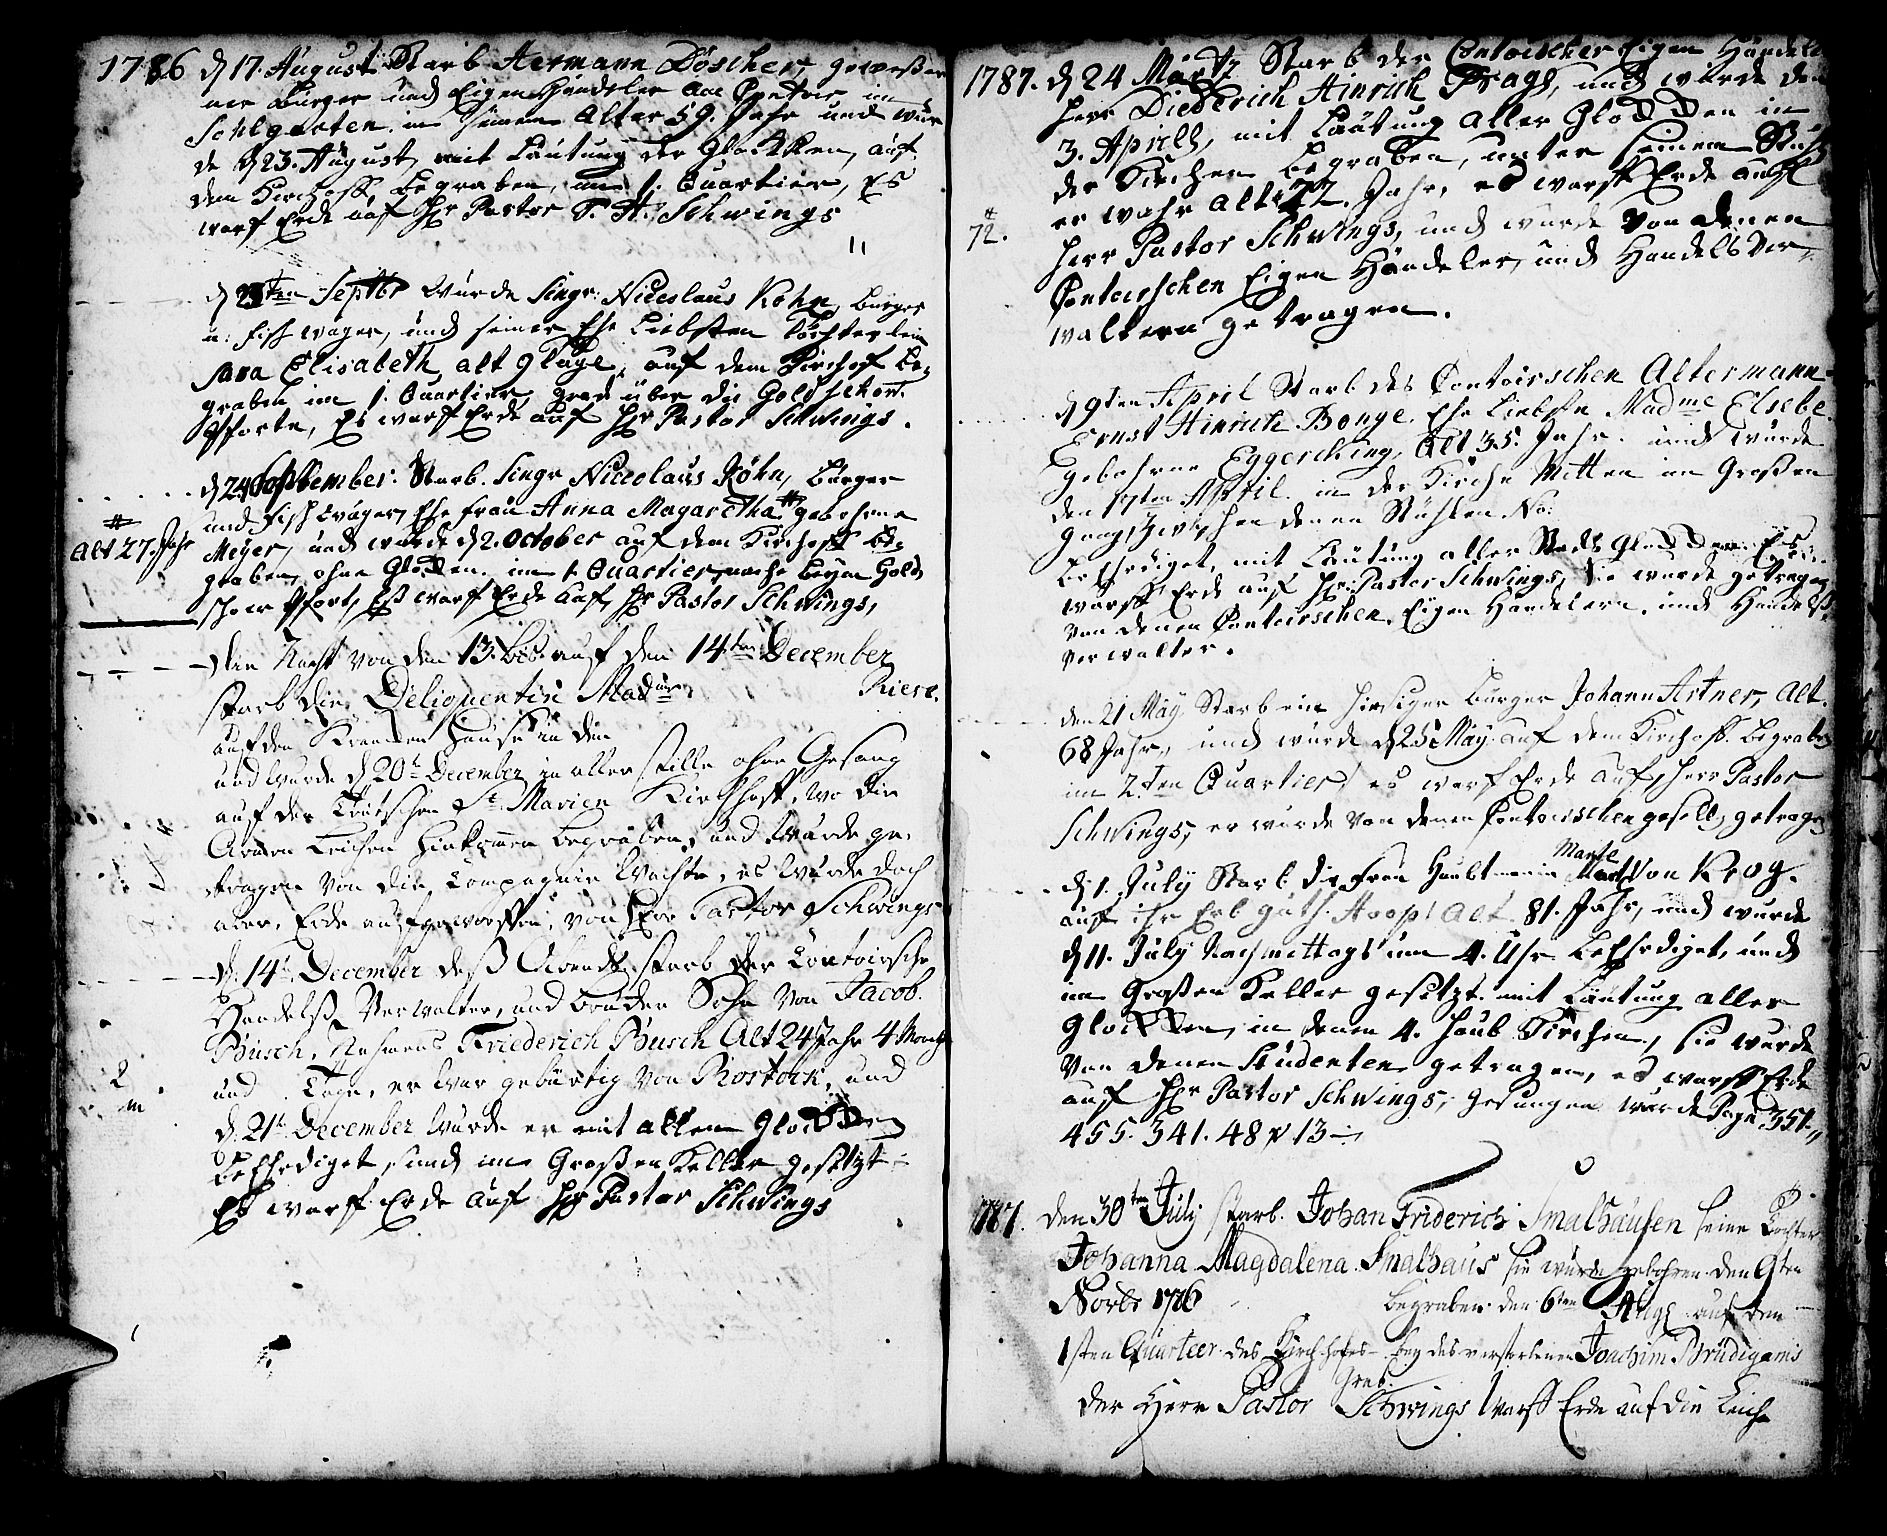 1786 d 17. August Starb Hermann Döscher, geweßer
ner Burger und Eigen Händeler am Contoir im
Sohlgarten. in seinem Alter 59. Jahr und wur
de d 23. August, mit Läutung der Glocken, auf
dem Kirchoff begraben, im 1. Quartier, Es
warf Erde auf Hr Pastor Schwings
d 23ten Septbr wurde Singr: Nicolaus Köhn, Bürger
u: Fisch wäger, und seiner Ehe Liebsten Töchterlein
Sara Elisabeth, alt 9 Tage, auf dem Kirchof be,
graben im 1. Quartier, grad über die Gold schou.
Pforte, Es warf Erde auf Hr Pastor Schwings.
d 24 September: Starb. Singr Nicolaus Köhn, Bürger
und Fisch wäger, Ehe frau Anna Magaretha # gebohrne
#
alt 27. Jahr
Meyer, und wurde d 2. October auf dem Kirchoff be,
graben, ohne Glocken. im 1. Quartier, nahe beym Gold
schou Pfort, Eß warf Erde auf, Hr Pastor Schwings,
die Nacht von den 13. bis auf den 14ten December
starb die Deliquentin Madme Riese.
auf den Krancken Hause in dem
und wurde d 20t December in aller stille ohne Gesang
auf der Teutschen St Marien Kirchhoff, wo die
Armen Leichen hinkommen begraben, und wurde ge,
tragen von die Compagnie Wachte, es wurde doch
aber, Erde aufgeworffen, von Herr Pastor Schwings
d. 14t December deß Abends starb der Contoirsche
Handelß Verwalter, und bruder Sohn von Jacob.
Büsch, Nahmens Friederich Büsch Alt 24 Jahr 4 Monht
und Tage, er war gebürtig von Rostock, und
d. 21t December wurde er mit allen Glocken
beEhrdiget, und im Großen Keller gesetzt
Es warf Erde auf Hr Pastor Schwings
1787. d 24 Martz Starb der Contoischer Eigen Händeler
Herr Diederich Hinrich Prags, und wurde den
3. Aprill, mit Läutung aller Glocken in
der Kirchen begraben, unter seinem Stuhl
er wahr alt 72. Jahr, es warff Erde auf
#
72.
Herr Pastor Schwings, und wurde von denen
Contoirschen Eigen Händeler, und Handels Ver,
waltern getragen.
d 9ten April Starb des Contoirschen Altermann
Ernst Hinrich Bonge. Ehe Liebste Madme Elsebe
gebohrne Eggerching, alt 35. Jahr. und wurde
den 17ten April in der Kirche Mitten im Großen
gang, zwischen denen Stühlen No:
beEhrdiget, mit Läutung aller Stadts Glocken. Es
warff Erde auf Hr: Pastor Schwings, sie wurde getragen
von denen Contoirschen, Eigen Handelern, und Handelß
Verwalter.
den 21 May Starb ein hiesiger Burger Johann Artner, Alt.
68 Jahr, und wurde d 25 May auf dem Kirchoff begraben
im 2.ten Quartier, es warf Erde auf, Herr Pastor
Schwings, er wurde von denen Contoirschen gesell, getragen
d 1. July Starb die Frau Haubtmanin Marte von Krog.
auf ihr Erb guth. Hoop alt 81. Jahr, und wurde
d 11. July Nachmittags um 4. Uhr beEhrdiget, und
im Großen Keller gesetzt. mit Läutung aller
Glocken, in denen 4. Haub Kirchen, sie wurde
von denen Studenten getragen, es warff Erde
auf Hr Pastor Schwings, Gesungen wurde Page 351.,
455. 341. 48 v 13
1787. den 30ten July starb. Johan Friderich Smalhausen seine Tochter
Johanna Magdalena Smalhaus sie wurde gebohren den 9ten
Novbr 1786 begraben den 6ten Augs auf den
1sten Quarteer des Kirchhofes bey des verstorbenen Joachim Brüdigams
Grab.
der Herr Pastor Schwings warff Erde auf die Leiche